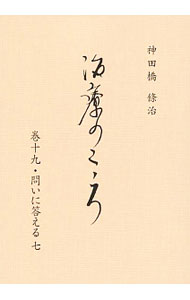 神田橋 條治
治療のこゝろ
巻十九・問いに答える 七